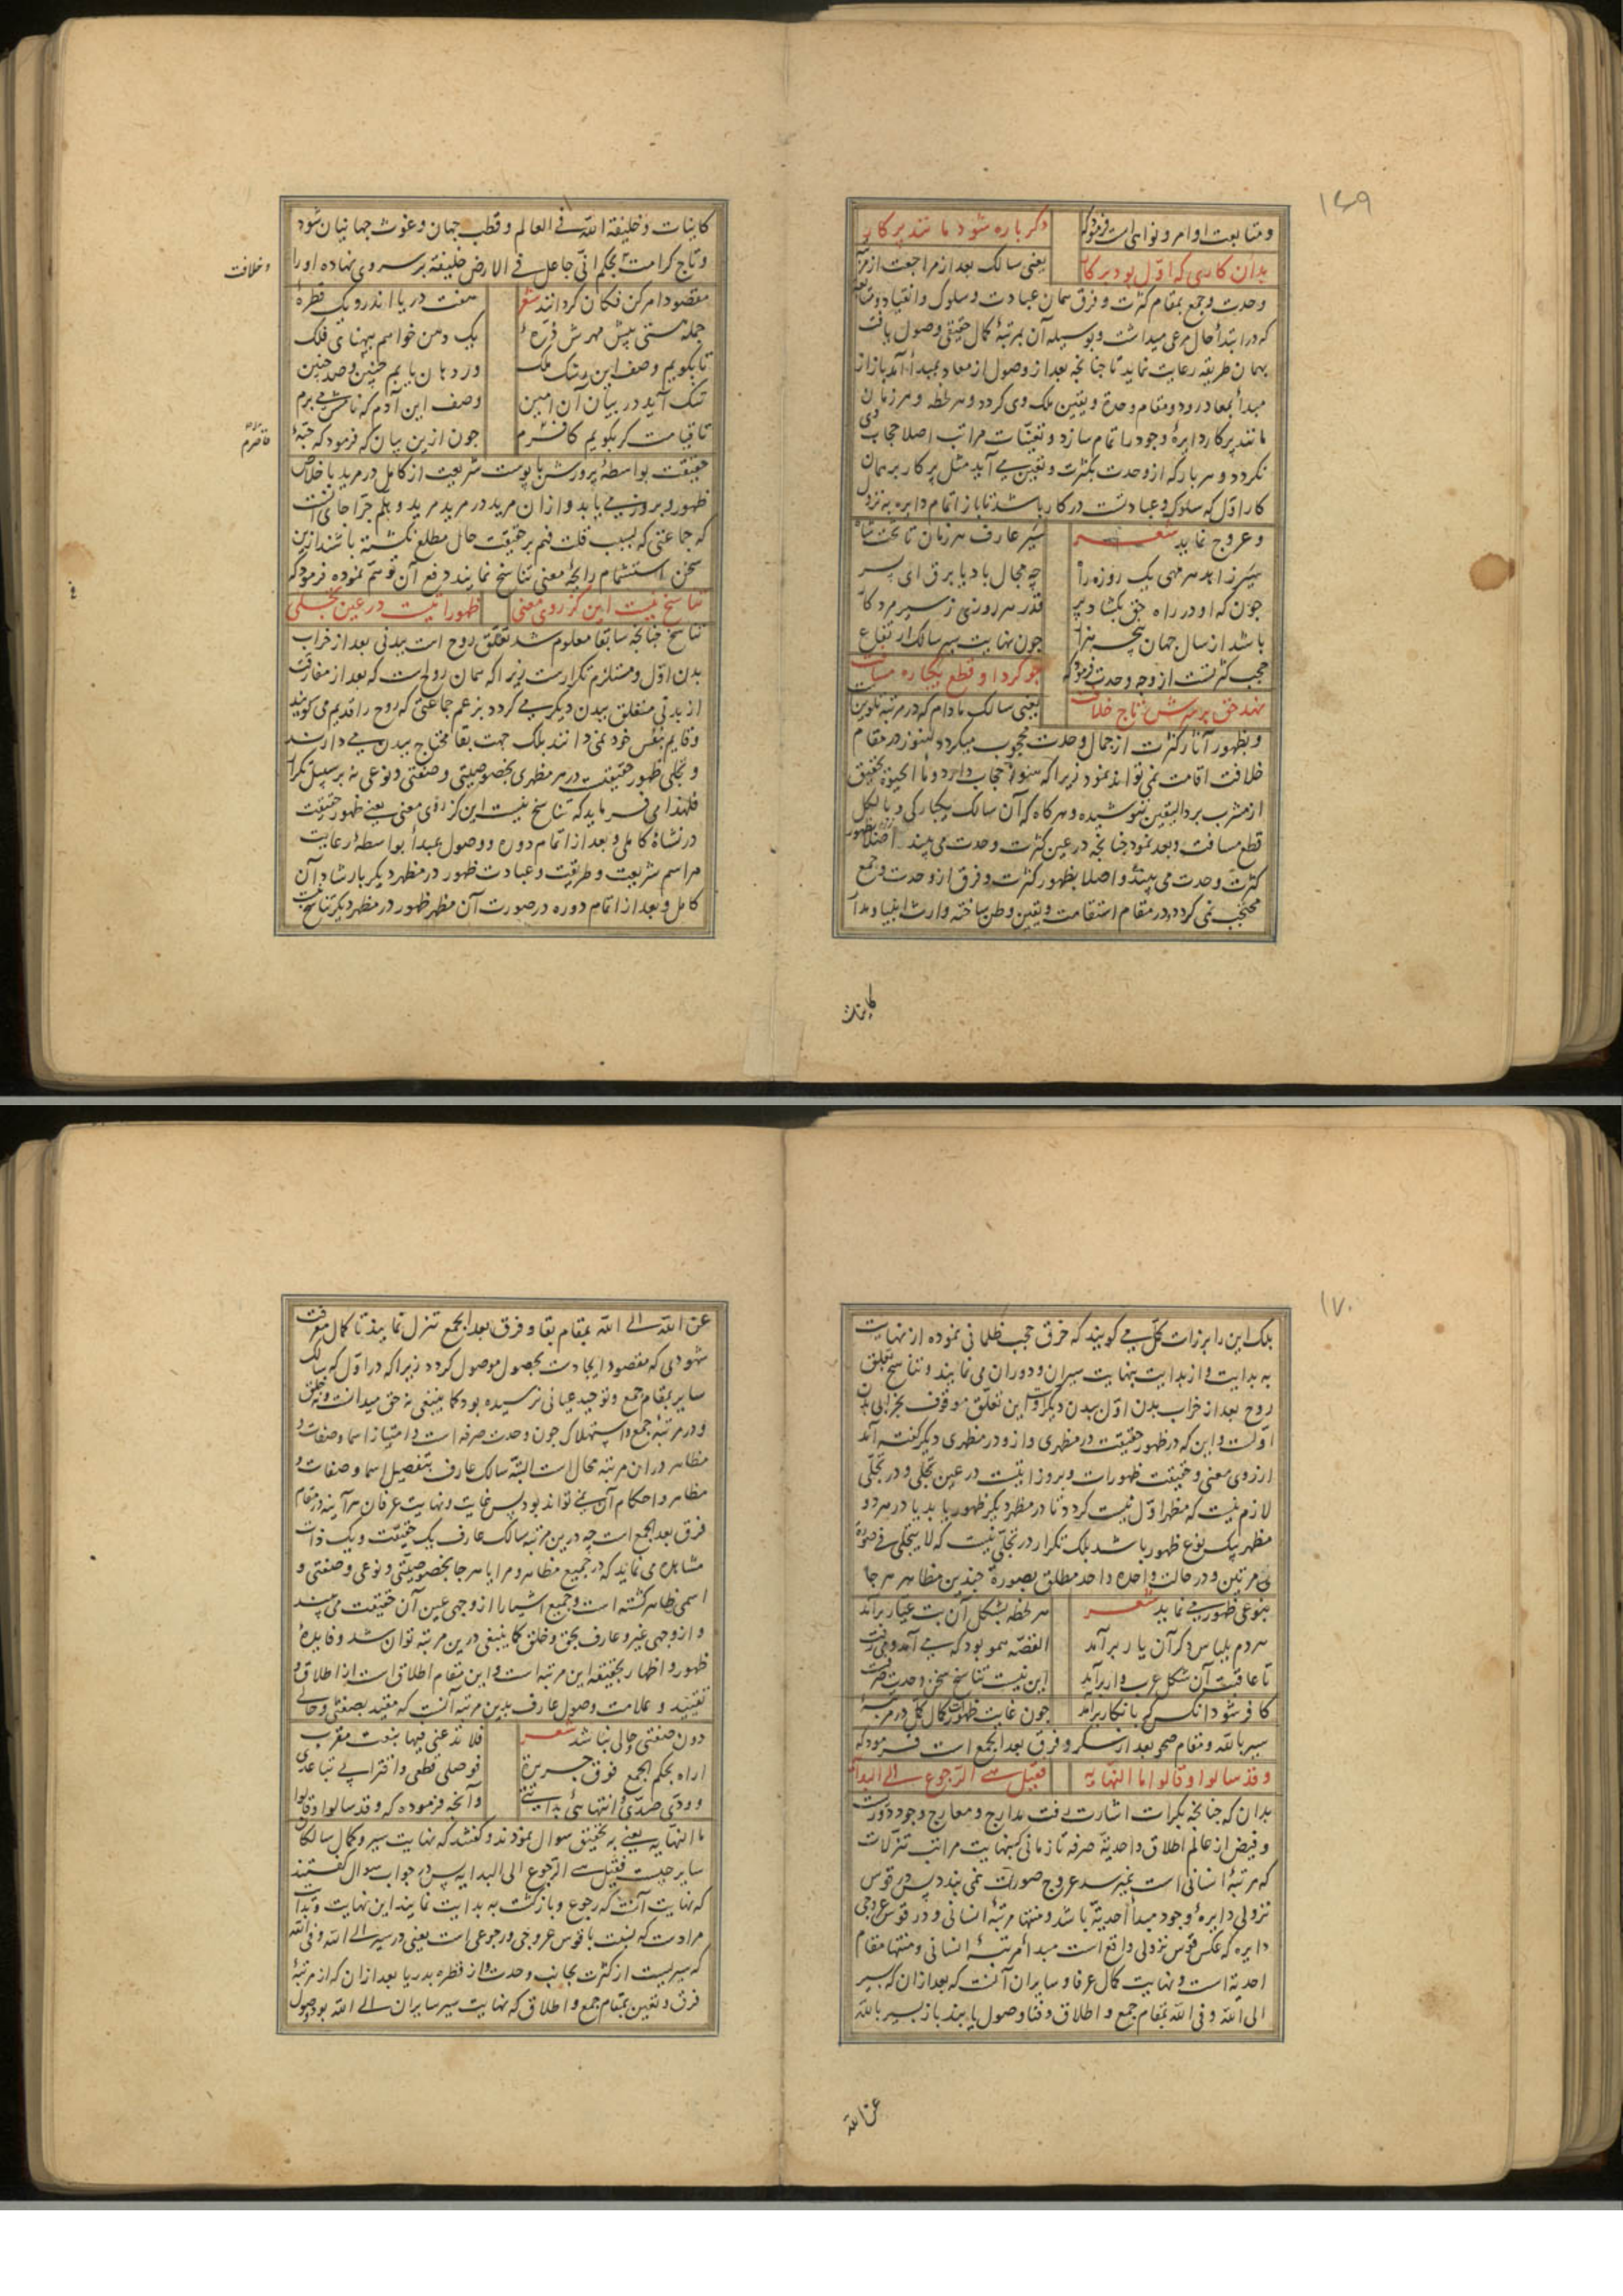 ۱۶۹
و متابعت اوامر و نواهی است فرمود که
دگرباره شود مانند پرکار
بدان کاری که اول بود بر کار
یعنی سالک بعد از مراجعت از مرتبه
وحدت و جمع بمقام کثرت و فرق همان عبادت و سلوک و انقیاد و متابعت
که در ابتداء حال مرعی میداشت و بوسیله آن بمرتبهٔ کمال حقیقی وصول یافت
بهمان طریقه رعایت نماید تا چنانچه بعد از وصول از معاد بمبدأ آمد باز از
مبدأ بمعاد رود و مقام وحدة و یقین ملک وی گردد و هر لحظه و هر زمان
مانند پرکار دایرهٔ وجود را تمام سازد و تعینات مراتب اصلا حجاب وی
نگردد و هر بار که از وحدت بکثرت و تعین می آید مثل پرکار بر همان
کار اول که سلوک و عبادتست در کار باشد تا باز اتمام دایره به نزول
و عروج نماید شعر
سیر عارف هر زمان تا تخت شاه
سیر زاهد هر مهی یک روزه راه
چه مجال باد یا برق ای پسر
چون که او در راه حق بکشاد پر
قدر هر روزی ز سیر مرد کار
باشد از سال جهان پنجه هزار
چون نهایت سیر سالک ارتفاع
حجب کثرتست از وجه وحدت فرمود که
چو کرد او قطع یکباره مسافت
نهد حق بر سرش تاج خلافت
یعنی سالک مادام که در مرتبه تلوین
و بظهور آثار کثرات از جمال وحدت محجوب میگردد هنوز در مقام
خلافت اقامت نمی تواند نمود زیرا که هنوز حجاب دارد و ماء الحیوة تحقیق
از مشرب برد الیقین ننوشیده و هرگاه که آن سالک یکبارگی و بالکل
قطع مسافت و بعد نمود چنانچه در عین کثرت وحدت می بیند
کثرت وحدت می بیند و اصلا بظهور کثرت و فرق از وحدت و جمع
محتجب نمی گردد در مقام استقامت و یقین وطن ساخته وارث انبیا و مدار
کاینات
کاینات و خلیفة اللّه فی العالم و قطب جهان و غوث جهانیان شود
و تاج کرامت بحکم انی جاعل فی الارض خلیفة بر سر وی نهاده او را
و خلافت
مقصود امر کن فکان گردانند شعر
هفت دریا اندرو یک قطرهٔ
جمله هستی پیش مهرش ذرّهٔ
یک دهن خواهم بپهنای فلک
تا بگویم وصف این رشک ملک
ور دهان یابم چنین و صد چنین
تنگ آید در بیان آن امین
وصف این آدم که نامش می برم
تا قیامت گر بگویم قاصرم
قاصرم
چون ازین بیان که فرمود که حبّهٔ
حقیقت بواسطهٔ پرورش با پوست شریعت از کامل در مرید با خلاص
ظهور و بروز می یابد و از آن مرید در مرید مرید و هلم جرّا جای آنست
که جماعتی که بسبب قلت فهم بر حقیقت حال مطلع نگشته باشند ازین
سخن استشمام رایحهٔ معنی تناسخ نمایند دفع آن توهّم نموده فرمود که
تناسخ نیست این کز روی معنی
ظهوراتیست در عین تجلی
تناسخ چنانچه سابقا معلوم شد تعلّق روح است ببدنی بعد از خراب
بدن اوّل و مستلزم تکرارست زیرا که همان روح است که بعد از مفارقت
از بدنی متعلق ببدن دیگر می گردد بزعم جماعتی که روح را قدیم می گویند
و قایم بنفس خود نمی دانند بلک جهت بقا محتاج ببدن می دارند
و تجلی ظهور حقیقتست در هر مظهری بخصوصیتی و صفتی و نوعی نه بر سبیل تکرار
فلهذا می فرماید که تناسخ نیست این کز روی معنی یعنی ظهور حقیقت
در نشاة کاملی و بعد از اتمام دوره و وصول بمبدأ بواسطهٔ رعایت
مراسم شریعت و طریقت و عبادت ظهور در مظهر دیگر بارشاد آن
کامل و بعد از اتمام دوره در صورت آن مظهر ظهور در مظهر دیگر تناسخ نیست
۱۷۰
بلک این را برزات کمّل می گویند که خرق حجب ظلمانی نموده از نهایت
به بدایت و از بدایت بنهایت سیران و دوران می نمایند و تناسخ تعلق
روح بعد از خراب بدن اول ببدن دیگر است و این تعلّق موقوف بخرابی بدن
اولست و این که در ظهور حقیقت در مظهری و از و در مظهری دیگر گفته آمد
از روی معنی و حقیقت ظهورات و بروزاتیست در عین تجلّی و در تجلّی
لازم نیست که مظهر اوّل نیست گردد تا در مظهر دیگر ظهور یابد یا در هر دو
مظهر بیک نوع ظهور باشد بلک تکرار در تجلّی نیست که لا یتجلی فی صورة
مرتین و در حالت واحده واحد مطلق بصورة چندین مظاهر هر جا
بنوعی ظهور می نماید شعر
هر لحظه بشکل آن بت عیار برآمد
هر دم بلباس دگر آن یار برآمد
القصّه همو بود که می آمد و می رفت
تا عاقبت آن شکل عرب وار برآمد
این نیست تناسخ سخن وحدت صرفست
کافر شود آنکس که بانکار برآمد
چون غایت ظهور کمال کل در مرتبهٔ
سیر باللّه و مقام صحو بعد از سکر و فرق بعد الجمع است فرمود که
و قد سالوا و قالوا ما النهایه
فقیل هی الرّجوع الی البدایه
بدان که چنانچه بکرات اشارت یافت مدارج و معارج وجود دوریست
و فیض از عالم اطلاق و احدیة صرفه تا زمانی که بنهایت مراتب تنزلات
که مرتبهٔ انسانی است نمیرسد عروج صورت نمی بندد پس در قوس
نزولی دایرهٔ وجود مبدأ احدیة باشد و منتها مرتبهٔ انسانی و در قوس عروجی
دایره که عکس قوس نزولی واقع است مبدا مرتبهٔ انسانی و منتها مقام
احدیة است و نهایت کمال عرفا و سایران آنست که بعد از آن که بسیر
الی اللّه و فی اللّه بمقام جمع و اطلاق و فنا وصول یابند باز بسیر باللّه
عن اللّه
عن اللّه الی اللّه بمقام بقا و فرق بعد الجمع تنزل نمایند تا کمال معرفت
شهودی که مقصود ایجادست بحصول موصول گردد زیرا که در اول که سالک
سایر بمقام جمع و توحید عیانی نرسیده بود کما ینبغی نه حق میدانست و نه خلق
و در مرتبهٔ جمع و استهلاک چون وحدت صرفه است و امتیاز اسما و صفات و
مظاهر در آن مرتبه محال است البتّه سالک عارف بتفصیل اسما و صفات و
مظاهر و احکام آن نمی تواند بود پس غایت و نهایت عرفان هر آینه در مقام
فرق بعد الجمع است چه درین مرتبه سالک عارف یک حقیقت و یک ذات
مشاهده می نماید که در جمیع مظاهر و مرایا هر جا بخصوصیّتی و نوعی و صفتی و
اسمی ظاهر گشته است و جمیع اشیا را از وجهی عین آن حقیقت می بیند
و از وجهی غیر و عارف بحق و خلق کما ینبغی درین مرتبه توان شد و فایدهٔ
ظهور و اظهار بحقیقه این مرتبه است و این مقام اطلاق است از اطلاق و
تقیید و علامت وصول عارف بدین مرتبه آنست که مقید بصفتی و حالی
دون صفتی و حالی نباشد شعر
فلا تدعنی فیها بنعت مقرب
اراه بحکم الجمع فوق جریرة
فوصلی قطعی و اقترابی تباعدی
و ودّی صدّی و انتهائی بدایتی
و آنچه فرموده که و قد سالوا و قالوا
ما النهایه یعنی به تحقیق سوال نمودند و گفتند که نهایت سیر و کمال سالکان
سایر چیست فقیل هی الرّجوع الی البدایه پس در جواب سوال گفتند
که نهایت آنست که رجوع و بازگشت به بدایت نمایند این نهایت و بدایت
مرادست که بنسبت با قوس عروجی و رجوعی است یعنی در سیر الی اللّه و فی اللّه
که سیریست از کثرت بجانب وحدت و از قطره بدریا بعد از آن که از مرتبهٔ
فرق و تعین بمقام جمع و اطلاق که نهایت سیر سایران الی اللّه بود وصول